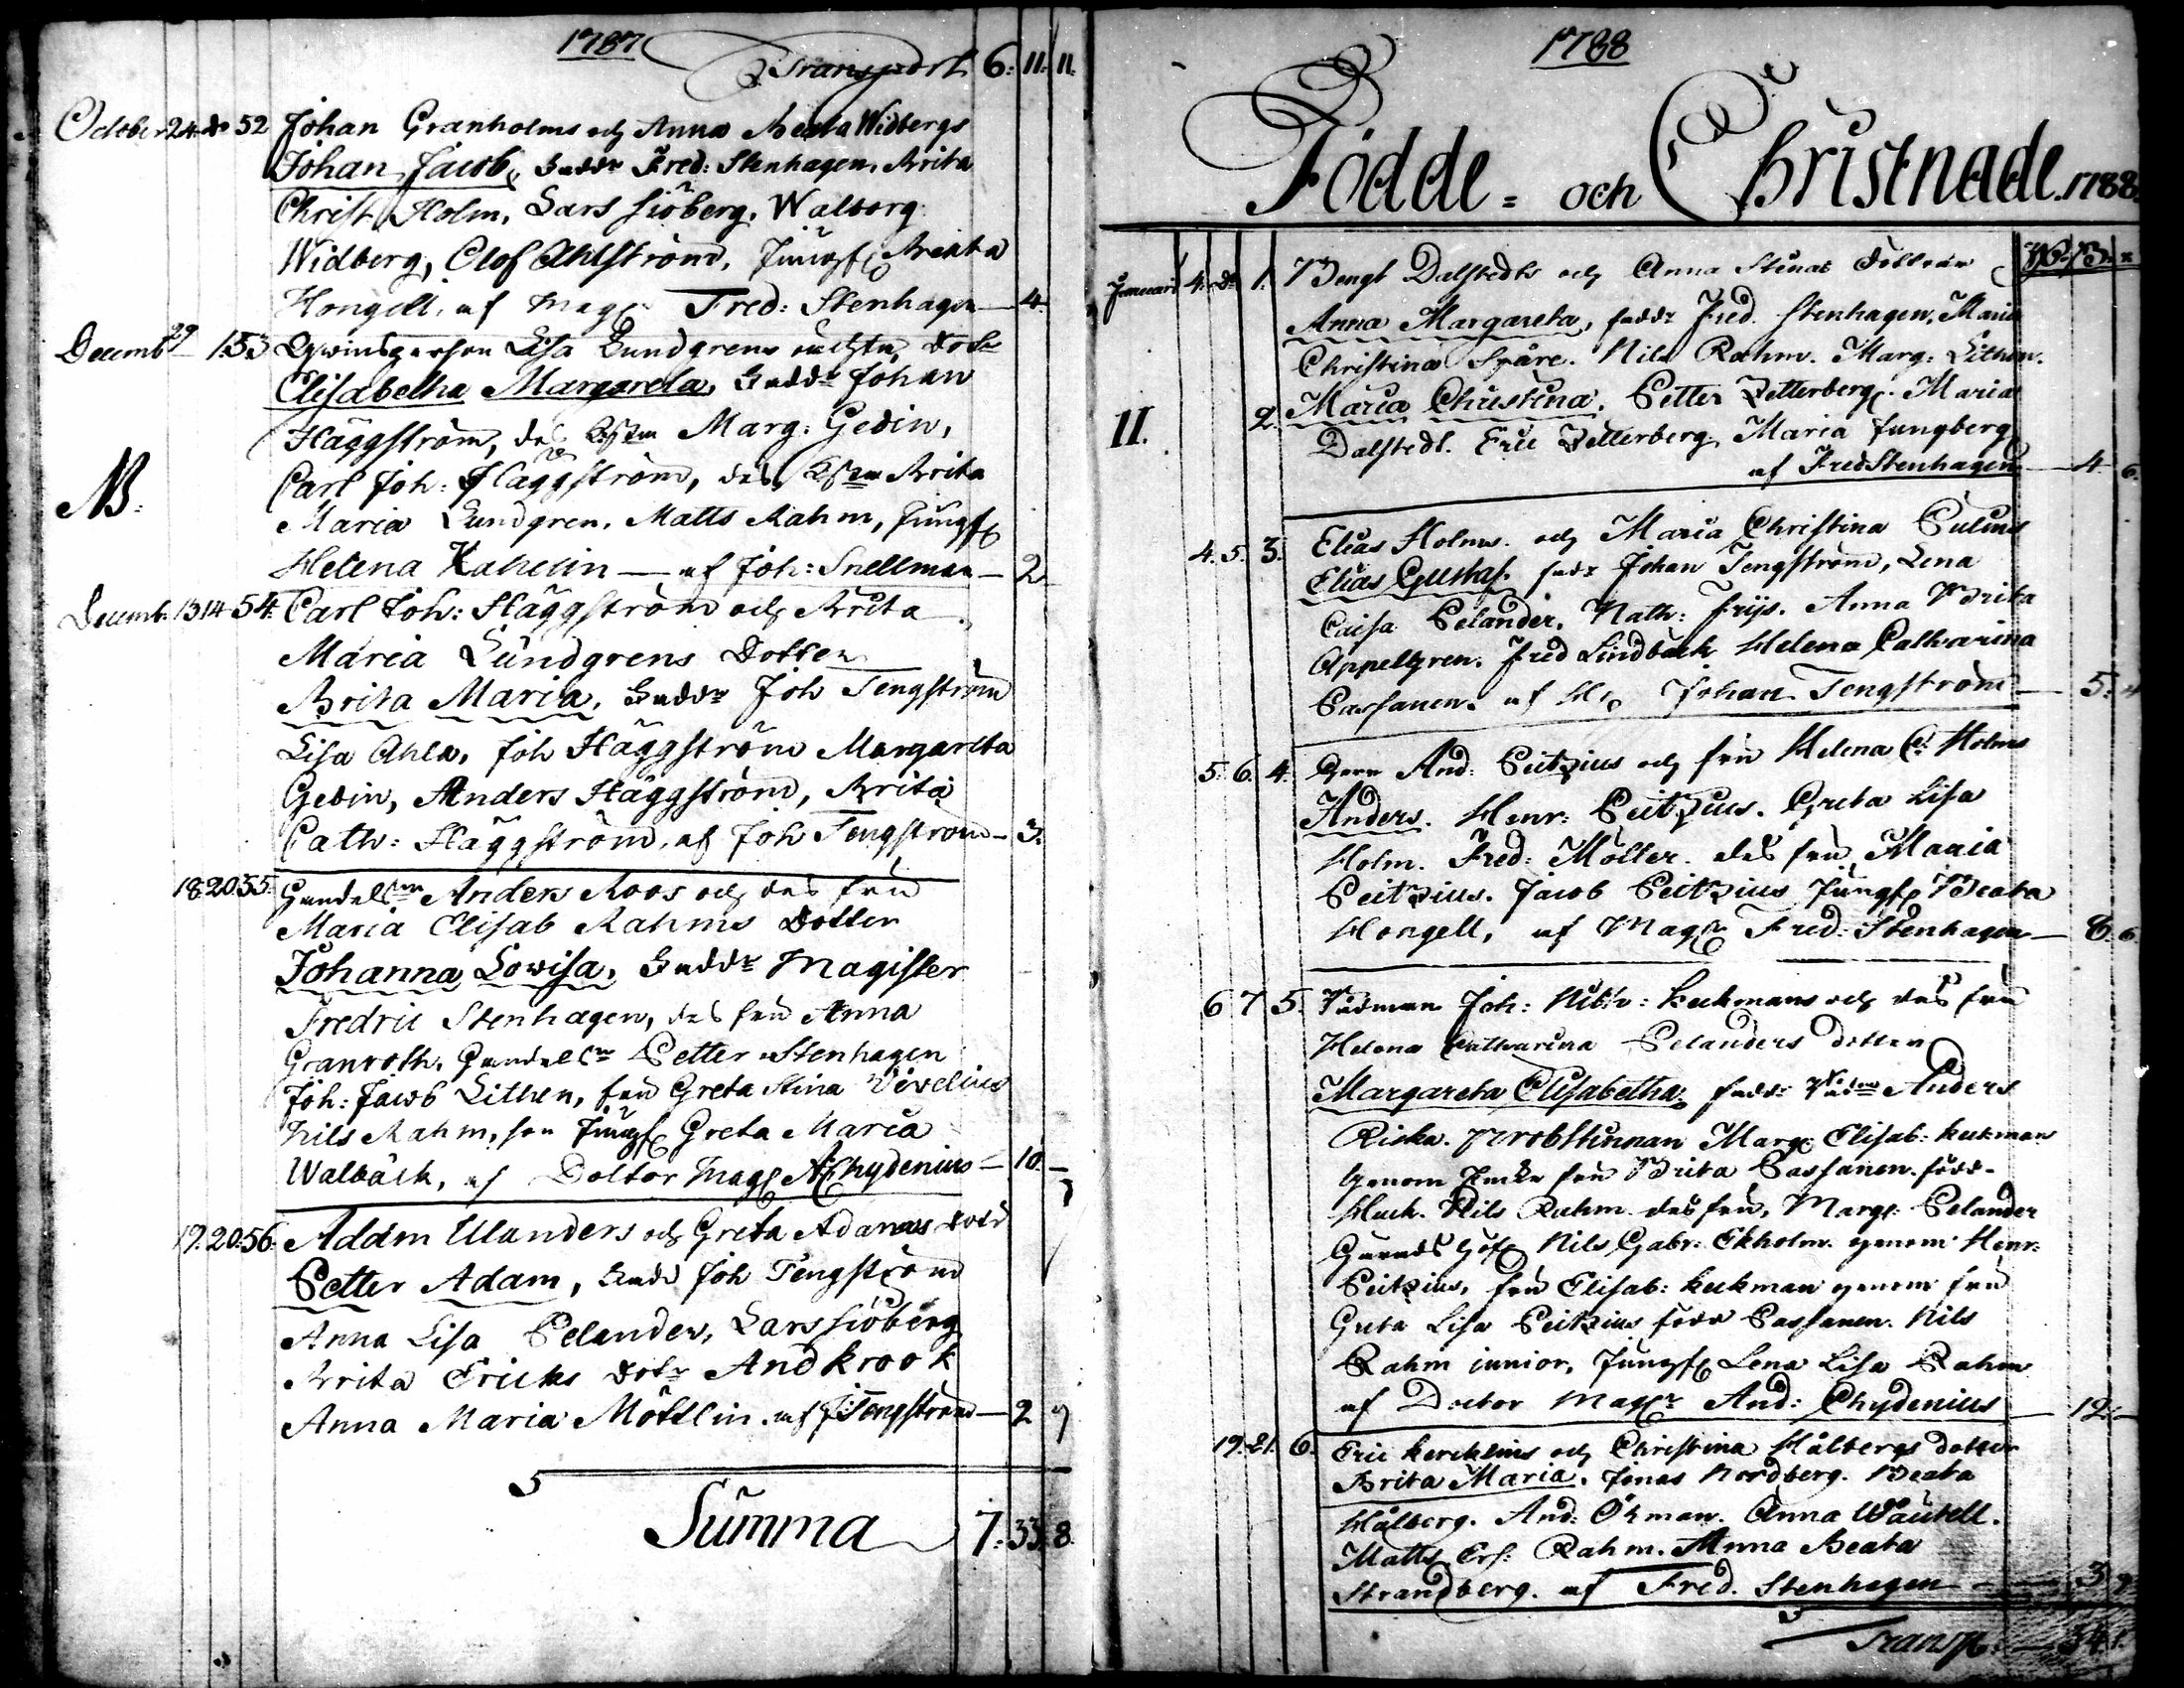 1787
Transport 6: 11: 11:
October 24 do 52 Johan Granholms och Anna Beata Widbergs
Johan Jacob, Fadd: Fred: Stenhagen, Brita
Christ Holm, Lars Siöberg, Walborg
Widberg, Olof Ahlström, Jungf Beata
Hongell, af Mag Fred: Stenhagen — 4
Decemb 29 1. 53 Lisa Lundgrens oächta Dotr
Elisabetha Margareta, Fadd: Johan
Häggström, des Marg: Gedin,
Carl Joh: Häggström, des Brita
NB:
Maria Lundgren, Matts Rahm, Jungf
Helena Kahelin — af Joh: Snellman — 2
Decemb. 13 14 54. Carl Joh: Häggström och Brita
Maria Lundgrens Dotter
Brita Maria, Fadd: Joh Tengström
Lisa Ahla, Joh Häggström Margareta
Gedin, Anders Häggström, Brita
Cath: Häggström, af Joh Tengström — 3.
18 20 55. Handelsm Anders Roos och des fru
Maria Elisab Rahms Dotter
Johanna Lovisa, Fadd: Magister
Fredric Stenhagen, des fru Anna
Granroth, Handelsm Petter Stenhagen
Joh: Jacob Lithen, fru Greta Stina
Nils Rahm, Jungf Greta Maria
Walbäck, af Doctor Mag A Chydenius — 10. —
19. 20. 56. Adam Ulanders och Greta Adams
Petter Adam, Fadd Joh Tengström
Anna Lisa Pelander, Lars Siöberg
Brita Ericks dotr And krook
Anna Maria Möttlin. af J: Tengström — 2
Summa 7: 33 8.
1788
Födde = och Christnade. 1788
Januari 4. do 1. Bengt Dalstedts och Anna Stinas Döttrar
Anna Margareta, Fadd: Fred. Stenhagen, Maria
Christina Spåre. Nils Rahm. Marg: Lithen.
II. 2. Maria Christina. Petter Zetterberg. Maria
Dalstedt. Eric Zetterberg Maria Jungberg
af Fred Stenhagen — 4 6.
4. 5. 3. Elias Holms. och Maria Christina
Elias Gustaf. Fadd: Johan Tengström, Lena
Caisa Pelander. Nath: Frijs. Anna Brita
Appelgren. Fred Lindbäck Helena Catharina
Passanen. af Johan Tengström — 5: 4
5. 6. 4. And: Peitzius och fru Helena C: Holms
Anders. Henr: Peitzius. Greta Lisa
Holm. Fred: Möller. des fru Maria
Peitzius. Jacob Peitzius Jungf Beata
Hongell, af Mag Fred: Stenhagen — 8. 6
6 7 5. Rådman Joh: kuckmans och des fru
Helena Catharina Pelanders dotter
Margareta Elisabetha. Fadd: Rådm Anders
Riska. Probstinnan Marg Elisab: kukman
genom fru Brita Passanen. född
Huck. Nils Rahm des fru, Marg: Pelander
Nils Gabr: Ekholm genom Henr:
Peitzius, fru Elisab: kukman genom fru
Greta Lisa Peitzius född Passanen. Nils
Rahm junior, Jungf Lena Lisa Rahm
af Doctor Mag And: Chydenius — 12: —
19. 21. 6. Eric kercklins och Christina Hålbergs dotter
Brita Maria. Jonas Nordberg. Beata
Hålberg. And: Öhman. Anna
Matts Ers: Rahm. Anna Beata
Strandberg. af Fred. Stenhagen — 3
Transp. — 34